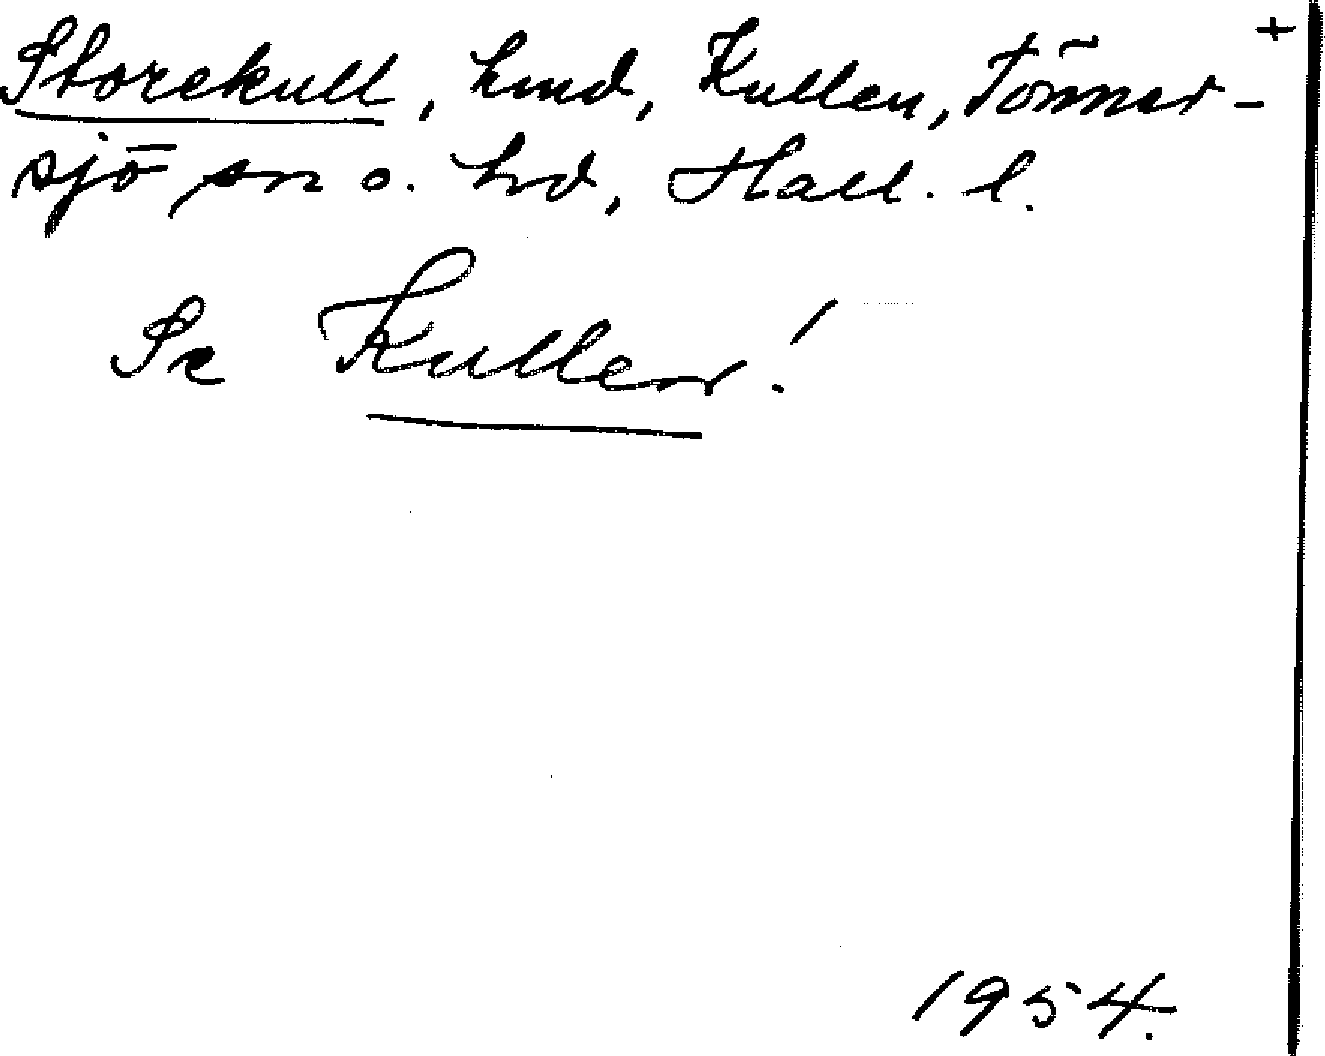 +
Storekull, hmd, Kullen, Tönner-
sjö sn o. hd, Hall. l.
Se Kullen!
1954.